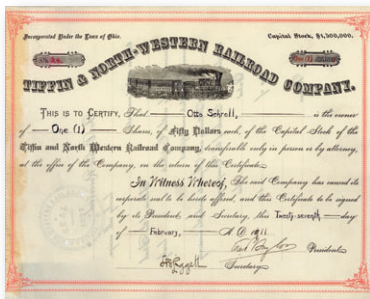 Incorporated Under the Laws of Ohio.
Capital Stock, $1,500,000.
TIFFIN & NORTH-WESTERN RAILROAD COMPANY.
THIS IS TO CERTIFY, That Otto Schroll, is the owner
of One (1) Shares, of Fifty Dollars each, of the Capital Stock of the
Tiffin and North Western Railroad Company, transferable only in person or by attorney,
at the office of the Company, on the return of this Certificate.
In Witness Whereof, The said Company has caused its
corporate seal to be hereto affixed, and this Certificate to be signed
by its President and Secretary, this Twenty-seventh day
of February, A. D. 1911.
President
Secretary